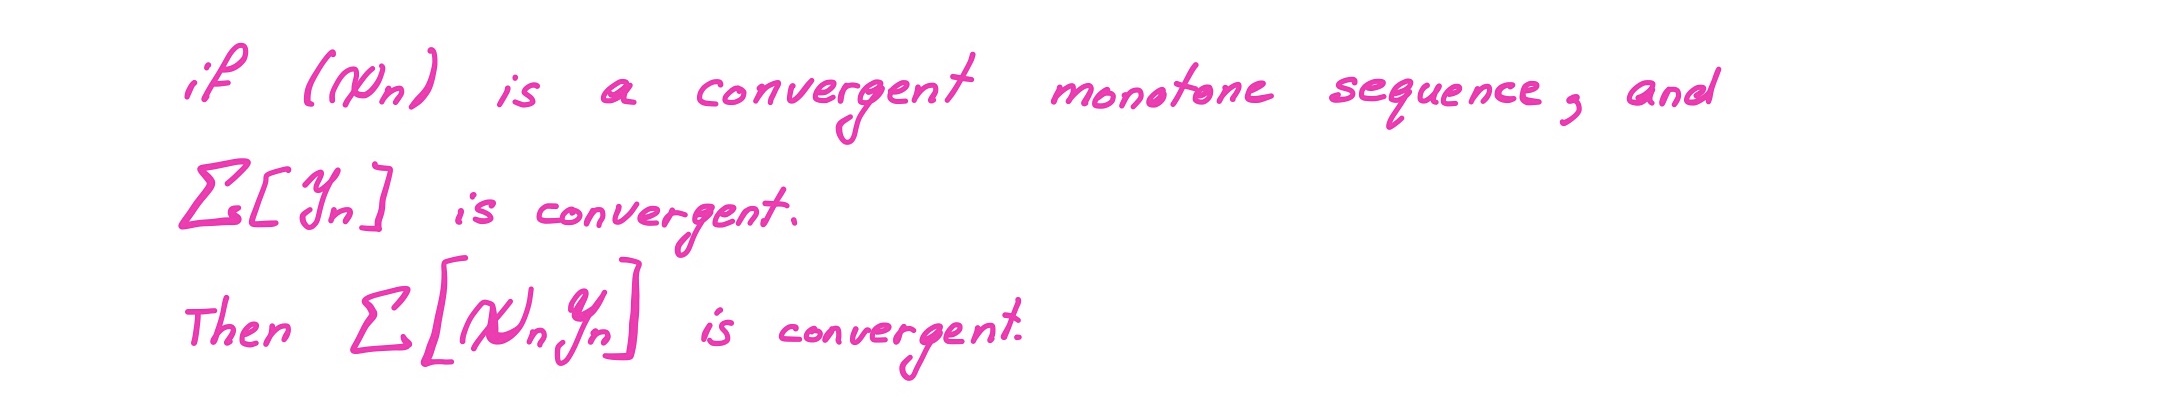 if (xn) is a convergent monotone sequence, and
Σ[yn] is convergent.
Then Σ[xnyn] is convergent.